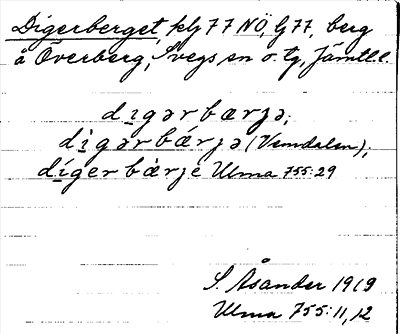 Digerberget, klJ 77 NÖ, G 77, berg
å Överberg, Svegs sn o. tg, Jämtl. l.
digərbærjə;
dìgərbǽrjə (Vemdalen);
díger bàrjé Ulma 755:29
S. Åsander 1919
Ulma 755:11,12